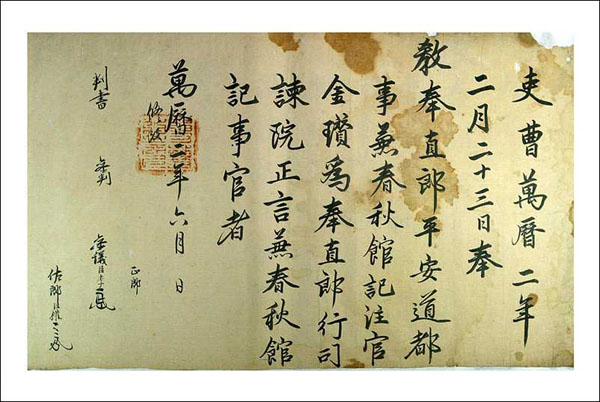 吏曹萬曆二年
二月二十三日奉
教奉直郎平安道都
事兼春秋館記注官
金瓚爲奉直郎行司
諫院正言兼春秋館
記事官者
萬曆二年六月 日
正郎
判書 參判 參議臣
佐郎臣